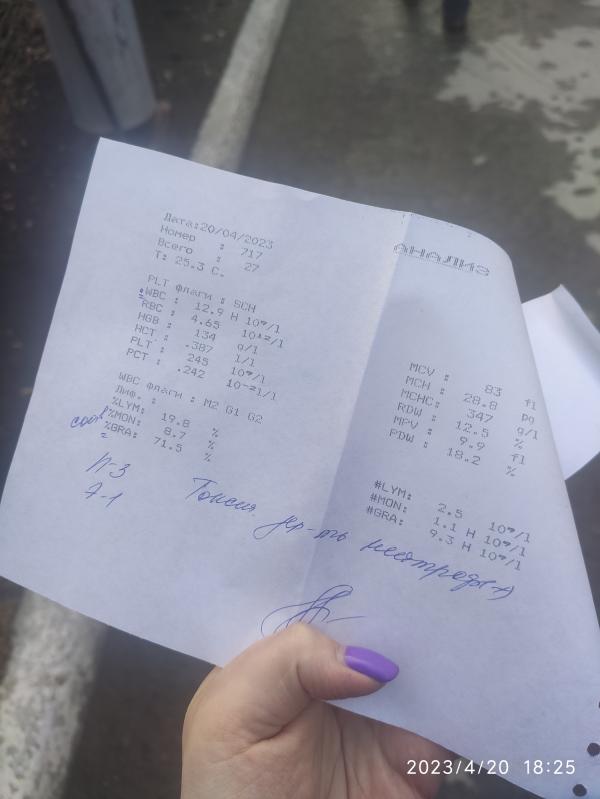 Дата:20/04/2023
Номер : 717
Всего : 27
Т: 25.3 C.
PLT флаги : SCH
WBC : 12.9 H 10⁹/l
RBC : 4.65 10¹²/l
HGB : 134 g/l
HCT : .387 l/l
PLT : 245 10⁹/l
PCT : .242 10⁻²l/l
WBC флаги : M2 G1 G2
Лиф. :
%LYM: 19.8 %
%MON: 8.7 %
%GRA: 71.5 %
АНАЛИЗ
MCV : 83 fl
MCH : 28.8 pg
MCHC: 347 g/l
RDW : 12.5 %
MPV : 9.9 fl
PDW : 18.2 %
#LYM: 2.5 10⁹/l
#MON: 1.1 H 10⁹/l
#GRA: 9.3 H 10⁹/l
П-3
Э-1
Токсич. зер-ть нейтроф(+)
2023/4/20 18:25